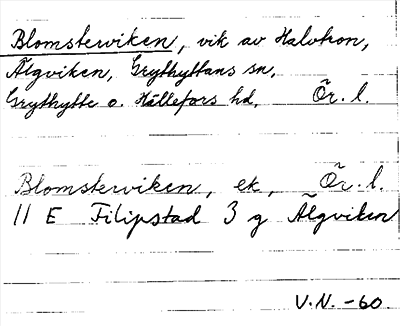 Blomsterviken, vik av Halvtron,
Älgviken, Grythyttans sn,
Grythytte o. Hällefors hd, Ör. l.
Blomsterviken, ek, Ör. l.
11 E Filipstad 3 g Älgviken
V.N. -60.